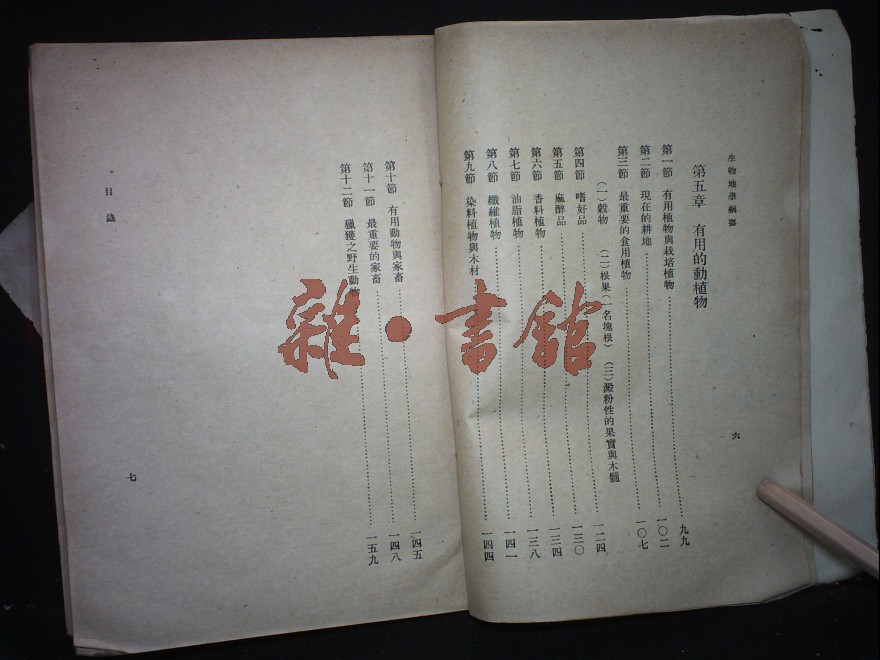 生物地學綱要
六
第五章 有用的動植物
第一節 有用植物與栽培植物……九九
第二節 現在的耕地……一〇二
第三節 最重要的食用植物……一〇七
(一)穀物 (二)根果(一名塊根) (三)澱粉性的果實與木髓
第四節 嗜好品……一二四
第五節 麻醉品……一三〇
第六節 香料植物……一三四
第七節 油脂植物……一三八
第八節 纖維植物……一四一
第九節 染料植物與木材……一四四
第十節 有用動物與家畜……一四五
第十一節 最重要的家畜……一四八
第十二節 獵獲之野生動物……一五九
目錄
七
雜·書館